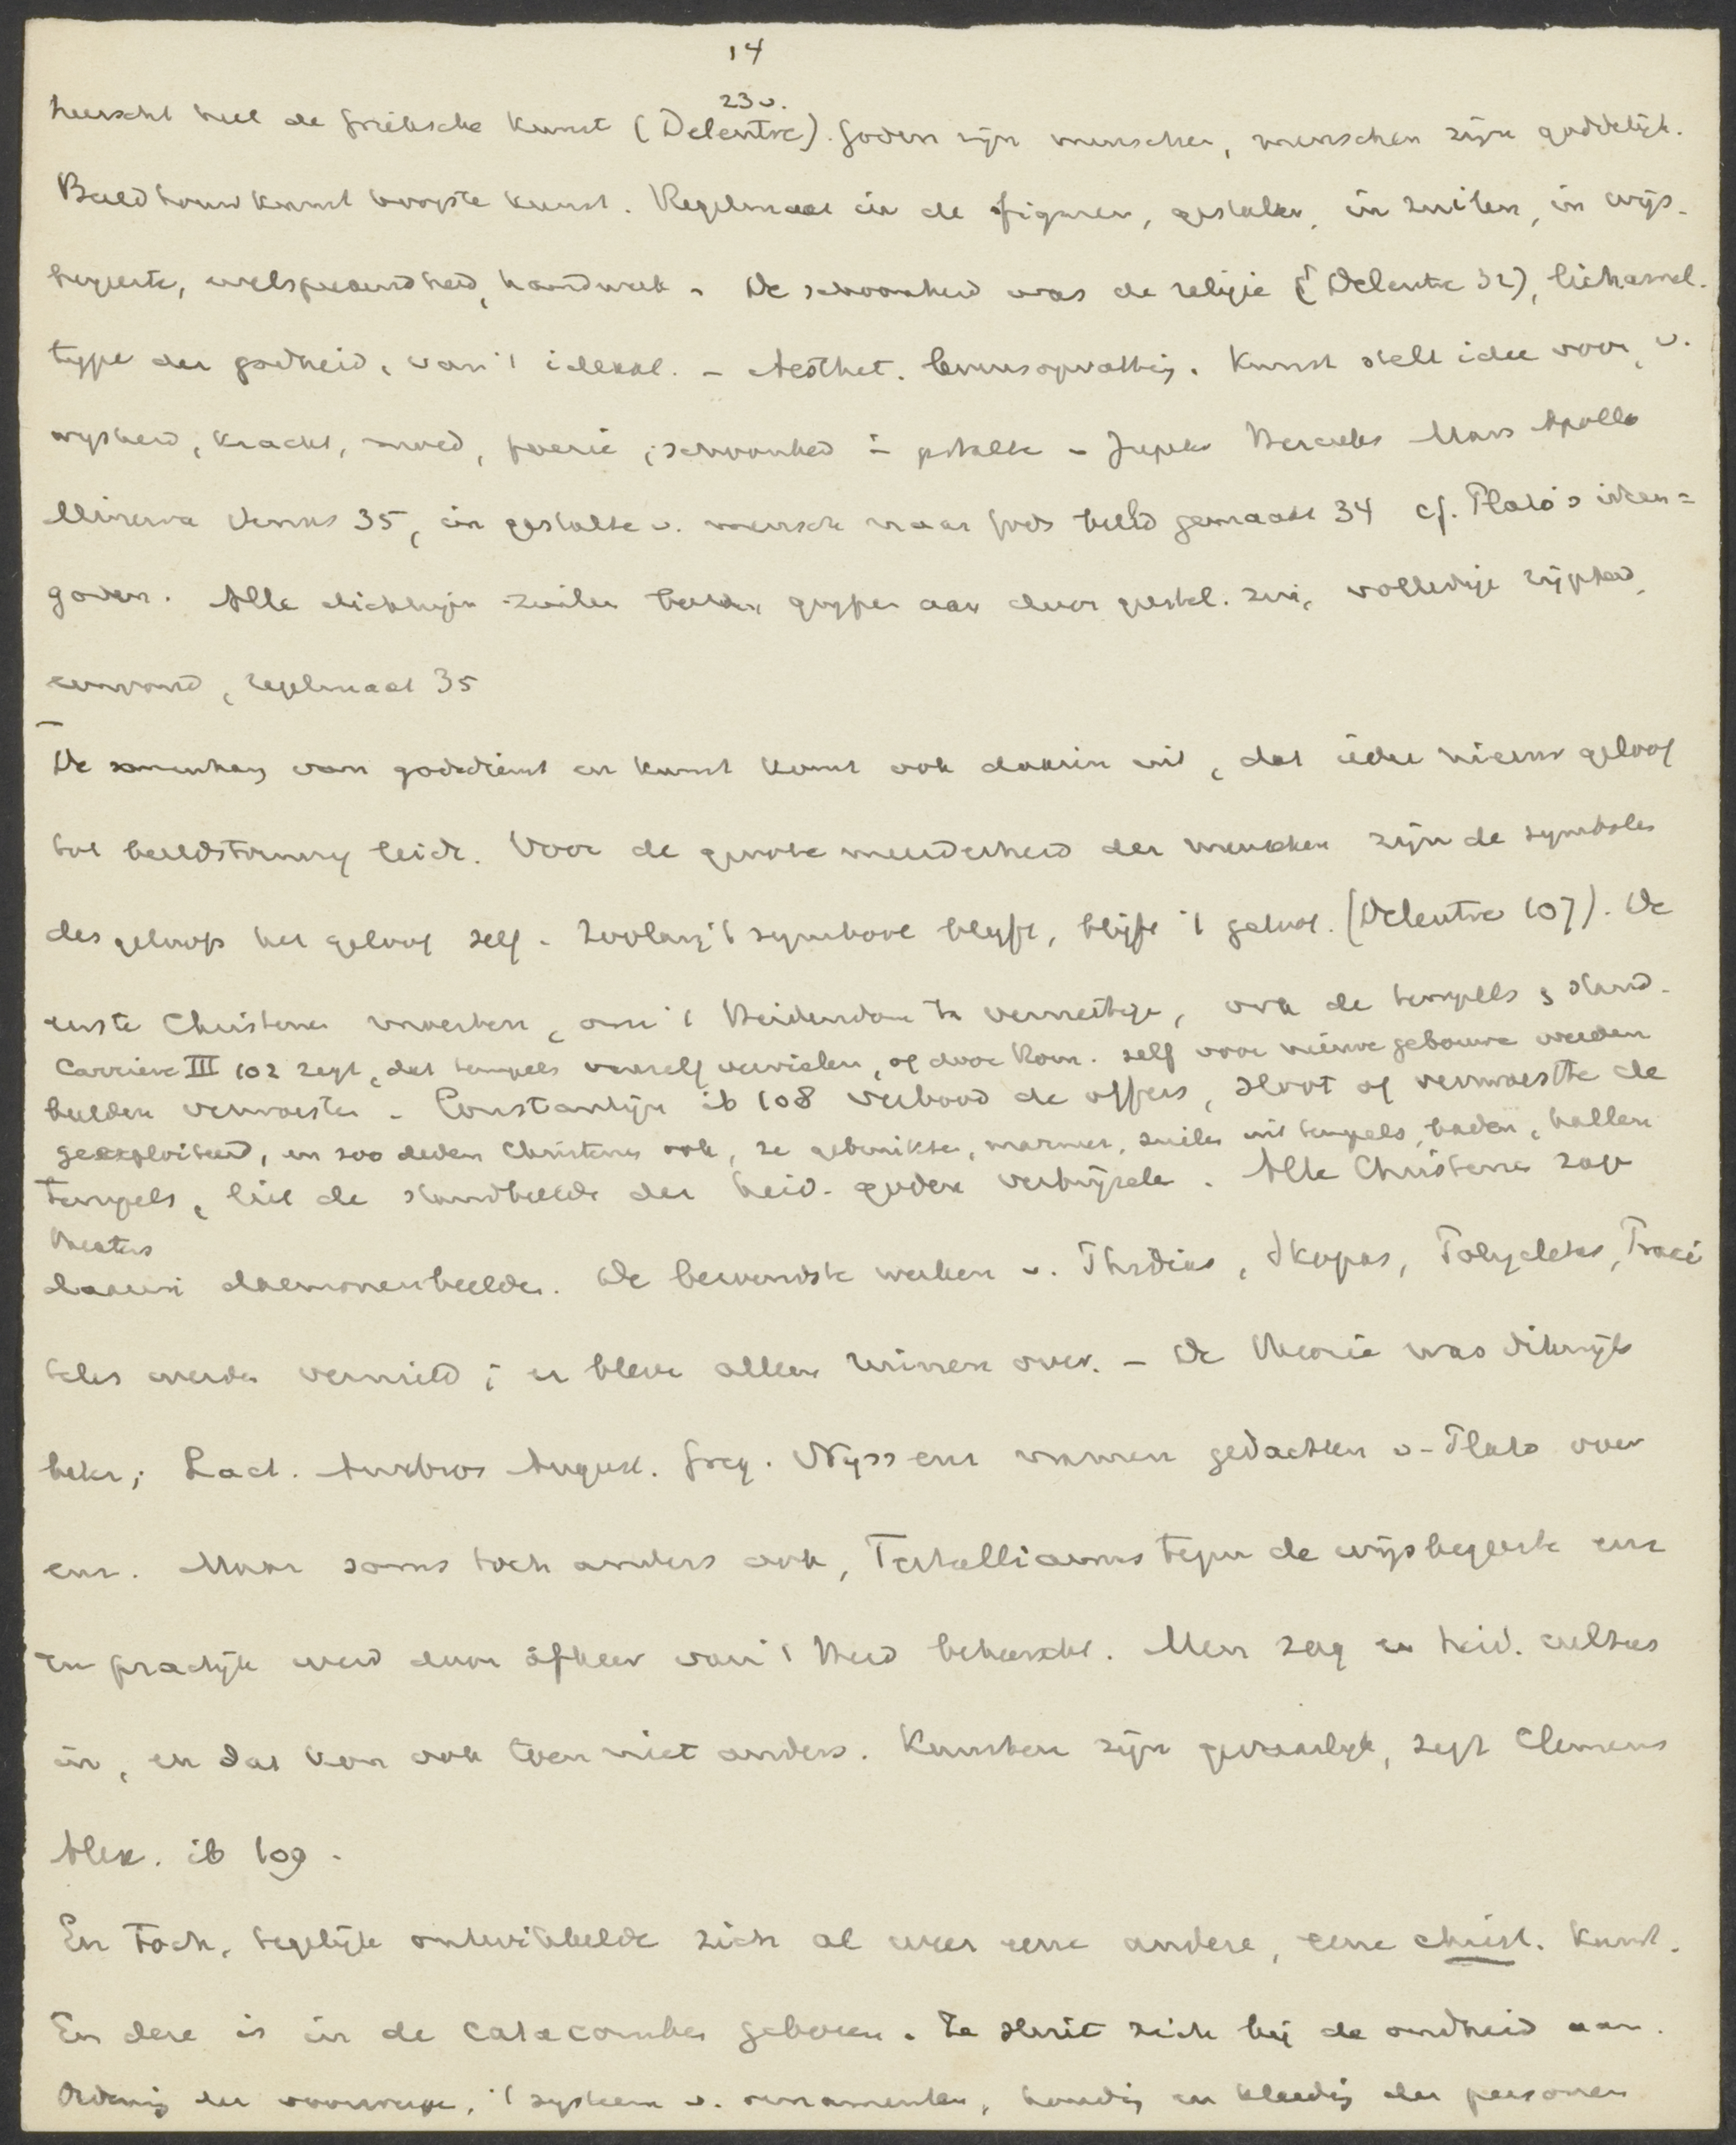 14
23v.
heerscht heel de Grieksche kunst (Delentre). Goden zijn menschen, menschen zijn goddelijk.
Beeldhouwkunst hoogste kunst. Regelmaat in de figuren, gestalten, in zuilen, in wijs-
begeerte, welsprekendheid, handwerk. De schoonheid was de religie (Delentre 32), lichamel.
type der godheid, van 't ideaal. - Aesthet. levensopvatting. Kunst stelt idee voor, v.
wijsheid, kracht, moed, poezie, schoonheid in gestalte - Jupiter Hercules Mars Apollo
Minerva Venus 35, in gestalte v. mensch naar Gods beeld gemaakt 34 cf. Plato's ideen=
goden. Alle dichtwijn zuilen beelden grijpen aan door gestal. zui, volledige rijpheid,
eenvoud, regelmaat 35
De samenhang van godsdienst en kunst komt ook daarin uit, dat ieder nieuw geloof
tot beeldstorming leidt. Voor de groote meerderheid der menschen zijn de symbolen
des geloofs het geloof zelf. Zoolang 't symbool blijft, blijft 't geloof. (Delentre 107). De
eerste Christenen moesten, om 't Heidendom te vernietigen, ook de tempels & stand-
Carriere III 102 zegt, dat tempels vanzelf vervielen, of door Rom. zelf voor nieuwe gebouwen werden
beelden verwoesten. Constantijn ib 108 verbood de offers, sloot of verwoestte de
geexploiteerd, en zoo deden Christenen ook, ze gebruikten, marmer, zuilen uit tempels, baden, hallen
tempels, liet de standbeelden der heid. goden verbrijzelen. Alle Christenen zagen
theaters
daarin daemonenbeelden. De beroemdste werken v. Phidias, Skopas, Polycletus, Praxi
teles werden vernield; er bleven alleen ruinen over. - De theorie was dikwijls
beter; Lact. Ambros August. Greg. Nyssenus namen gedachten v. Plato over
enz. Maar soms toch anders ook, Tertullianus tegen de wijsbegeerte enz
En practijk werd door afkeer van 't Heid beheerscht. Men zag er heid. cultus
in, en dat kon ook toen niet anders. Kunsten zijn gevaarlijk, zegt Clemens
Alex. ib 109.
En toch, tegelijk ontwikkelde zich al weer eene andere, eene christ. kunst.
En deze is in de catacomben geboren. Ze sluit zich bij de oudheid aan.
Ordening der voorwerpen, 't systeem v. ornamenten, houding en kleeding der personen